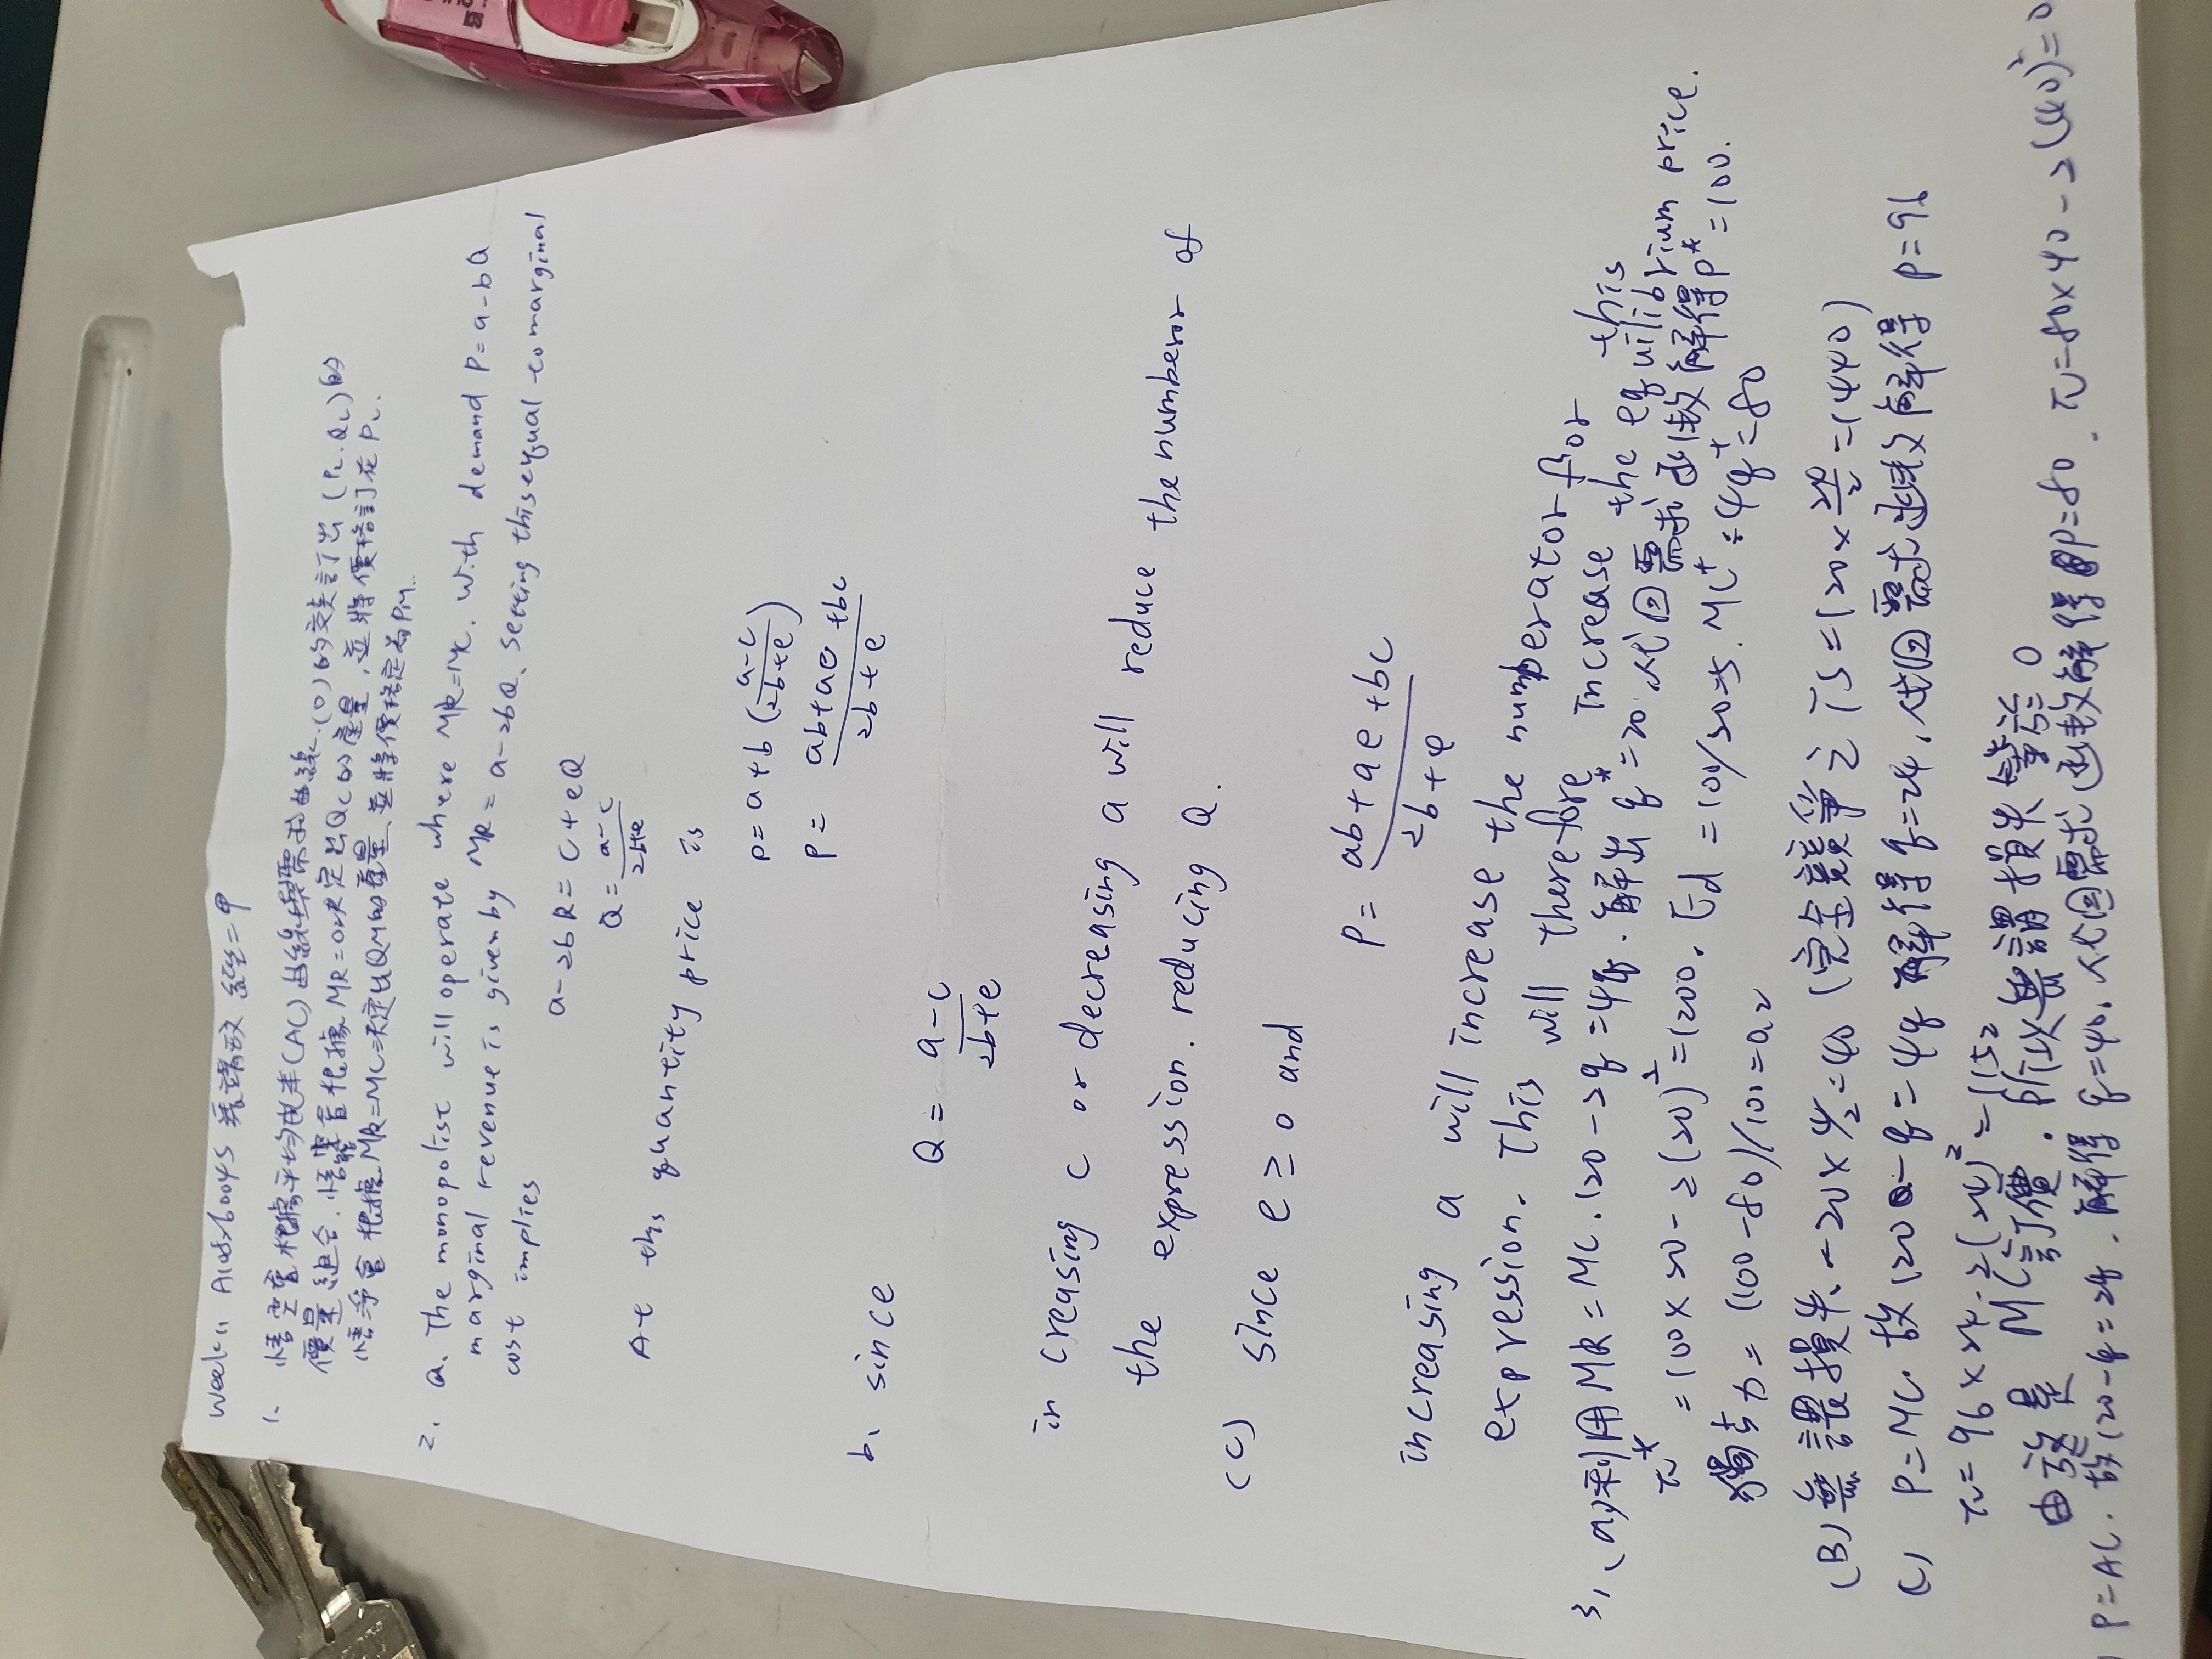 Week11 A108260045 張靖玟 經濟二甲
1. 悟空會根據平均成本(AC)曲線與需求曲線(D)的交點訂出(PL.QL)的
價量組合.悟能會根據MR=0決定出QC的產量,並將價格訂在PC.
悟淨會根據MR=MC決定出QM的產量,並將價格定為PM.
2. a. The monopolist will operate where MR=MC. With demand P=a-bQ
marginal revenue is given by MR=a-2bQ. setting this equal to marginal
cost implies
a-2bR=c+eQ
Q=\frac{a-c}{2b+e}
At this quantity price is
p=a+b(\frac{a-c}{2b+e})
P=\frac{ab+ae+bc}{2b+e}
b. since
Q=\frac{a-c}{2b+e}
in creasing c or decreasing a will reduce the numberor of
the expression. reducing Q.
(c) since e≥0 and
P=\frac{ab+ae+bc}{2b+e}
increasing a will increase the numberator for this
expression. This will therefore increase the equilibrium price.
3. (a)利用MR=MC.120-2q=4q.解出q*=20.代回需求函數解得p*=100.
π*=100×20-2(20)²=1200.Ed=100/20=5.MC*=4q*=80
獨占力=(100-80)/100=0.2
(B)無謂損失=20×4/2=40(完全競爭之TS=120×24/2=1440)
(c) P=MC.故120-q=4q解得q=24,代回需求函數解得p=96
π=96×24-2(24)²=1152
由於是MC訂價.所以無謂損失等於0
P=AC.故120-q=2q.解得q=40.代回需求函數解得p=80.π=80×40-2(40)²=0